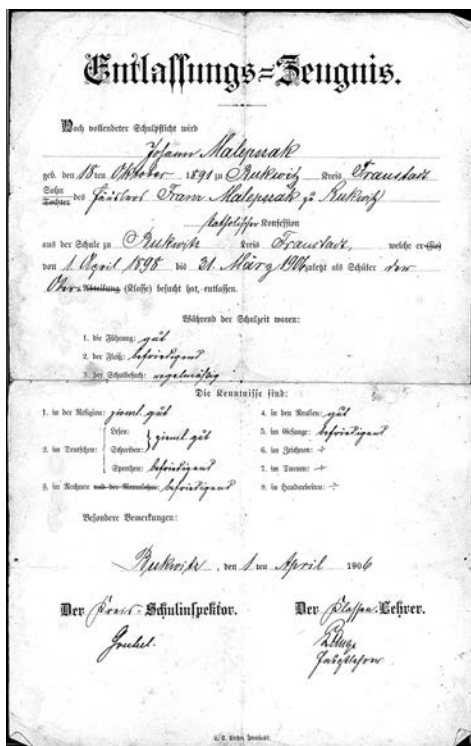 Entlassungs=Zeugnis.
Nach vollendeter Schulpflicht wird
Johann Malepszak
geb. den 18ten Oktober 1891 zu Rukwitz Kreis Fraustadt
Sohn
Tochter des Häuslers Franz Malepszak zu Rukwitz
katholischer Konfession
aus der Schule zu Rukwitz Kreis Fraustadt, welche er (sie)
von 1. April 1898 bis 31. März 1906 zuletzt als Schüler der
Ober-Abteilung (Klasse) besucht hat, entlassen.
Während der Schulzeit waren:
1. die Führung: gut
2. der Fleiß: befriedigend
3. der Schulbesuch: regelmäßig
Die Kenntnisse sind:
1. in der Religion: zieml. gut
2. im Deutschen:
Lesen:
Schreiben: ziemt. gut
Sprechen: befriedigend
3. im Rechnen und der Raumlehre: befriedigend
4. in den Realien: gut
5. im Gesange: befriedigend
6. im Zeichnen: ÷
7. im Turnen: ÷
8. in Handarbeiten: ÷
Besondere Bemerkungen:
Rukwitz, den 1ten April 1906
Der Kreis-Schulinspektor.
Der Klassen-Lehrer.
Hauptlehrer